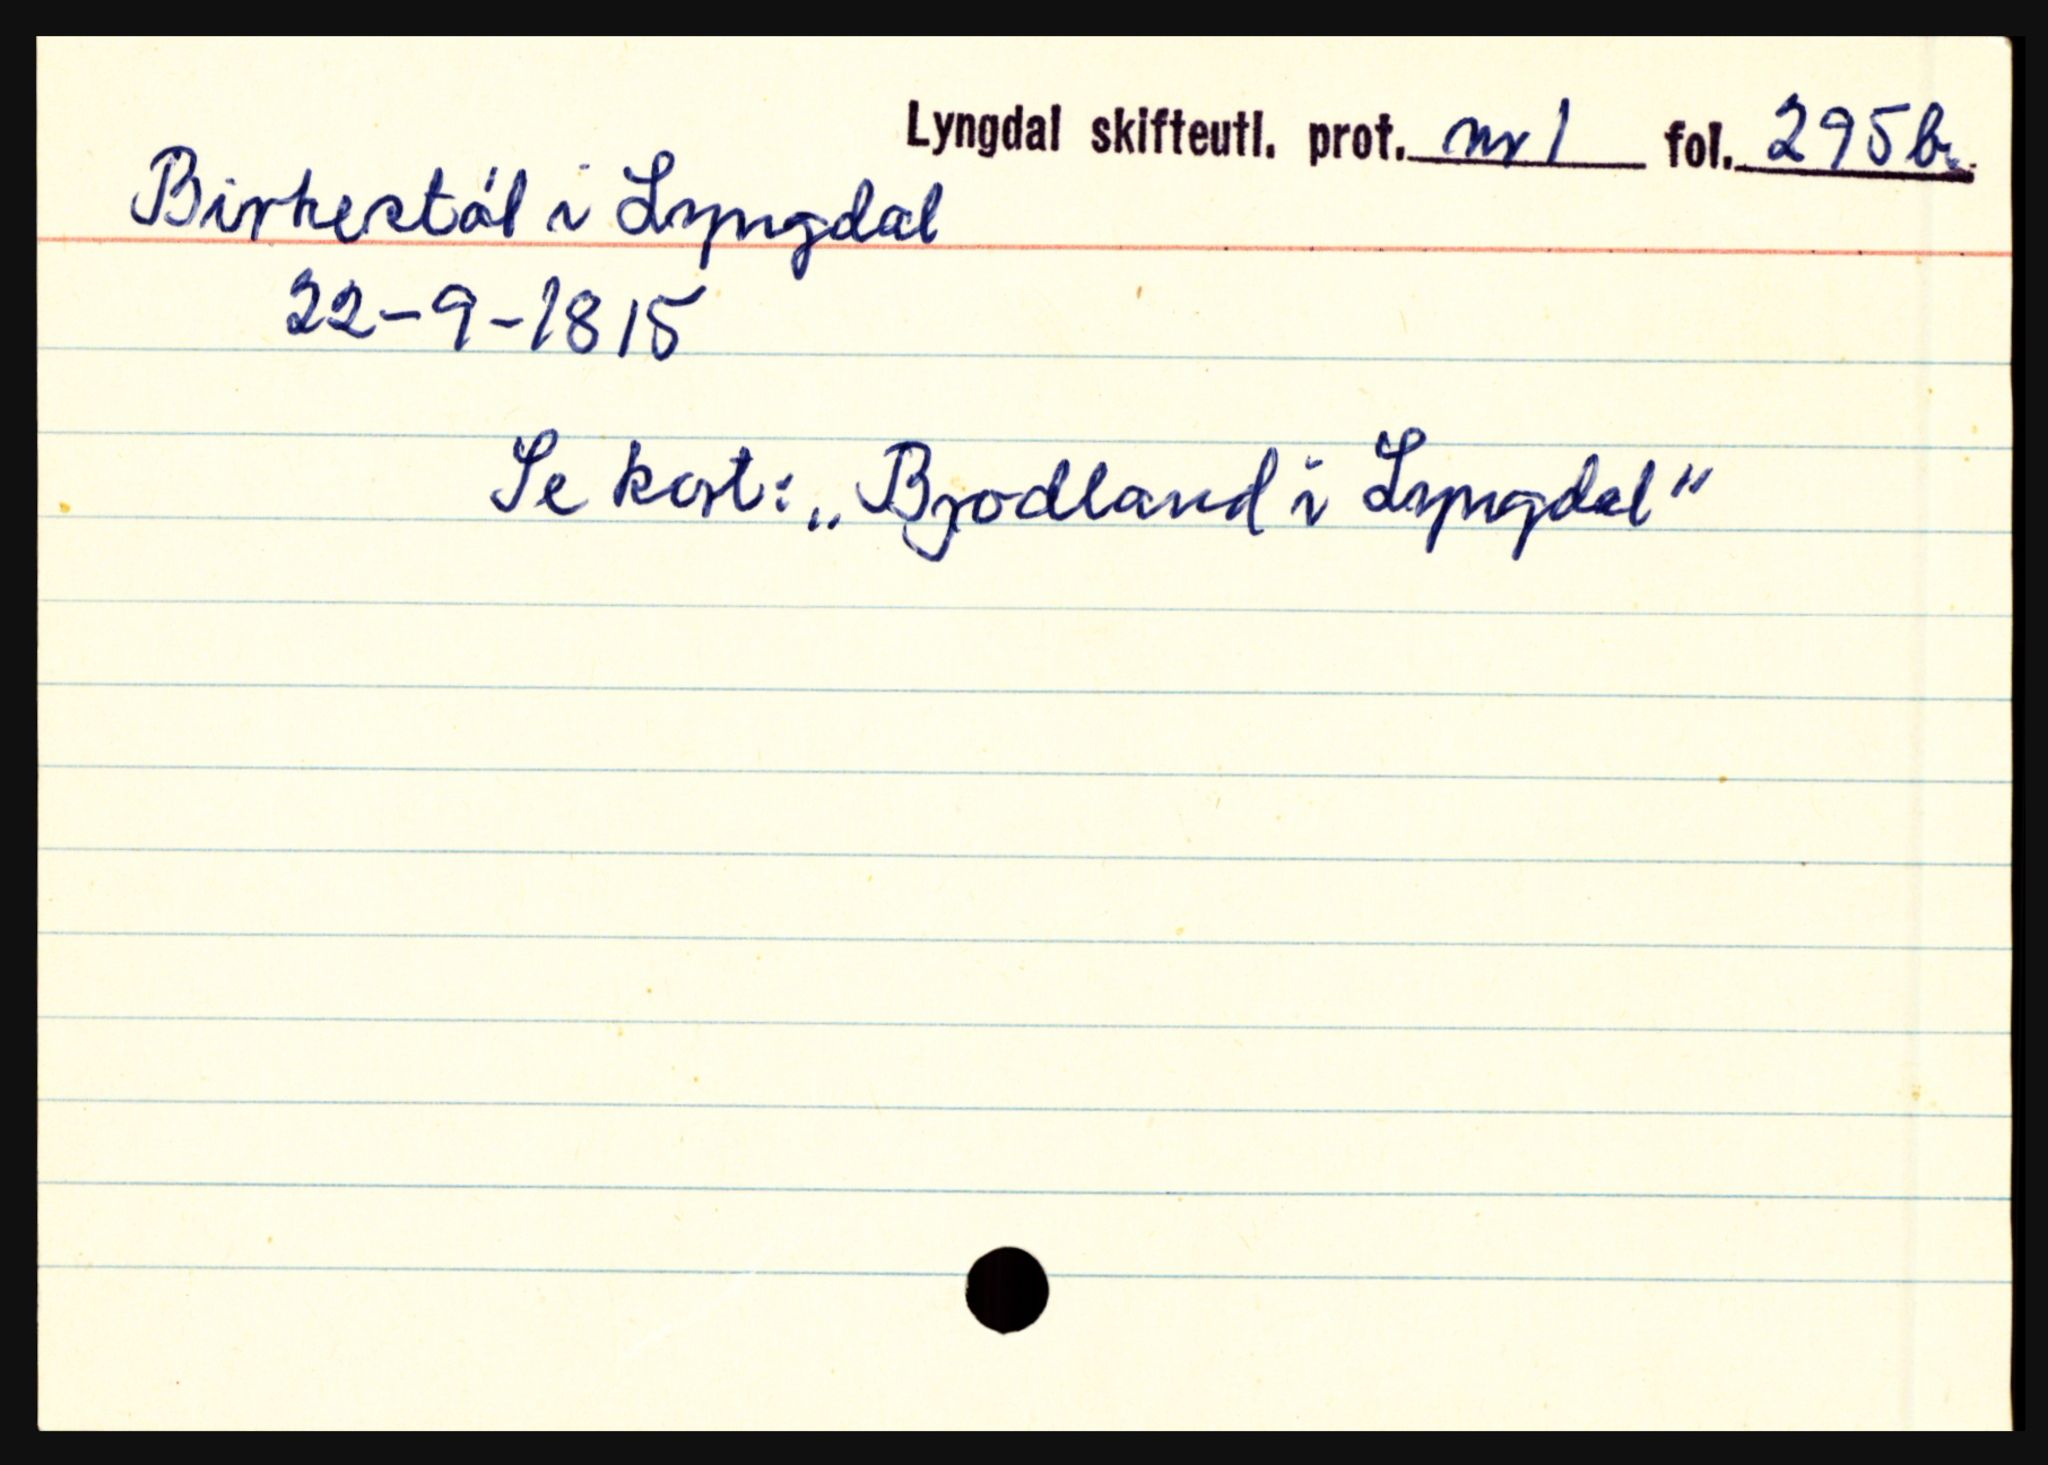 Lyngdal skifteutl. prot. nr 1 fol. 295b.
Birkestøl i Lyngdal
22-9-1815
Se kort: „Bjodland i Lyngdal"